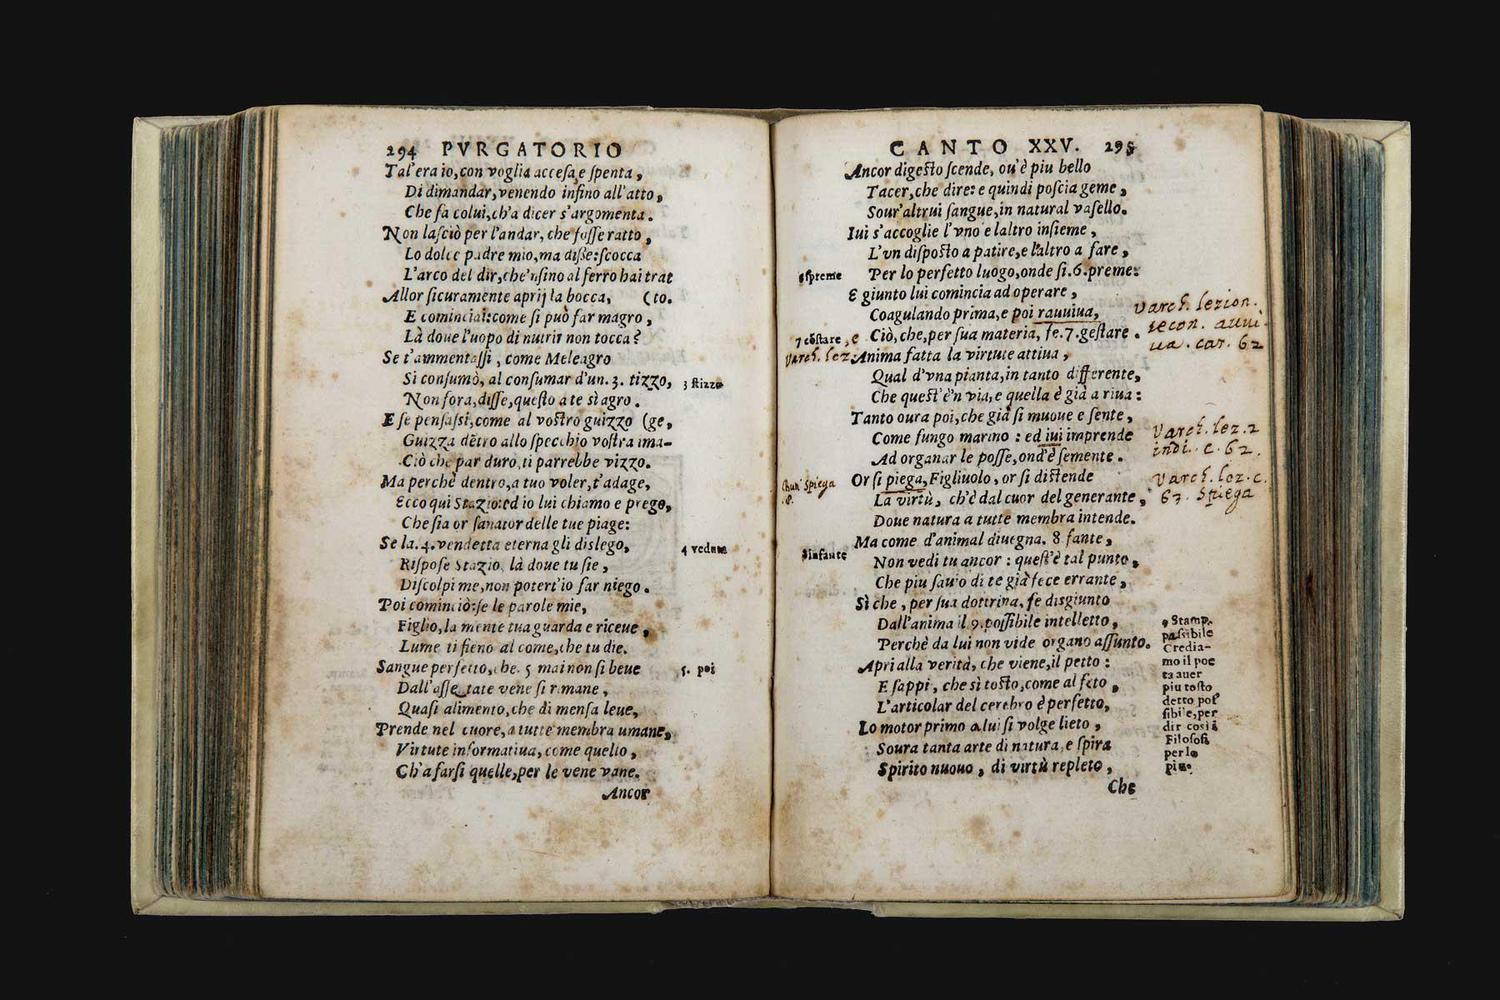 294 PVRGATORIO
Tal'era io, con voglia accesa, e spenta,
Di dimandar, venendo infino all'atto,
Che fa colui, ch'a dicer s'argomenta.
Non lasciò per l'andar, che fosse ratto,
Lo dolce padre mio, ma disse: scocca
L'arco del dir, che'nsino al ferro hai trat
Allor sicuramente aprij la bocca, (to.
E cominciai: come si può far magro,
Là doue l'uopo di nutrir non tocca?
Se t'ammentassi, come Meleagro
Si consumò, al consumar d'un. 3. tizzo,
3 stizzo
Non fora, disse, questo a te sì agro.
E se pensassi, come al vostro guizzo (ge,
Guizza dētro allo specchio vostra ima-
Ciò che par duro, ti parrebbe vizzo.
Ma perchè dentro, a tuo voler, t'adage,
Ecco qui Stazio: ed io lui chiamo e prego,
Che sia or sanator delle tue piage:
Se la. 4. vendetta eterna gli dislego,
4 veduta
Rispose Stazio, là doue tu sie,
Discolpi me, non potert'io far niego.
Poi cominciò: se le parole mie,
Figlio, la mente tua guarda e riceue,
Lume ti fieno al come, che tu die.
Sangue perfetto, che. 5 mai non si beue
5. poi
Dall'assetate vene si rimane,
Quasi alimento, che di mensa leue,
Prende nel cuore, a tutte membra umane,
Virtute informatiua, come quello,
Ch'a farsi quelle, per le vene vane.
Ancor
CANTO XXV. 295
Ancor digesto scende, ou'è piu bello
Tacer, che dire: e quindi poscia geme,
Sour'altrui sangue, in natural vasello.
Iui s'accoglie l'vno e laltro insieme,
L'vn disposto a patire, e l'altro a fare,
6 spreme
Per lo perfetto luogo, onde si. 6. preme:
E giunto lui comincia ad operare,
Coagulando prima, e poi rauuiua,
Varch. lezion.
secon. auui
ua. car. 62
7 cōstare, e
Ciò, che, per sua materia, fe. 7. gestare.
Varch. lez.
Anima fatta la virtute attiua,
Qual d'vna pianta, in tanto differente,
Che quest'è'n via, e quella è già a riua:
Tanto oura poi, che già si muoue e sente,
Come fungo marino: ed iui imprende
Varch. lez. 2
indi. c. 62.
Ad organar le posse, ond'è semente.
Or si piega, Figliuolo, or si distende
Varch. lez. c.
63. Spiega
spiega
La virtù, ch'è dal cuor del generante,
Doue natura a tutte membra intende.
Ma come d'animal diuegna. 8 fante,
8 infante
Non vedi tu ancor: quest'è tal punto,
Che piu sauio di te già fece errante,
Sì che, per sua dottrina, fe disgiunto
Dall'anima il 9. possibile intelletto,
9 Stamp.
passibile
Credia-
mo il poe
ta auer
piu tosto
detto pos
sibile, per
dir così i
Filosofi
per lo
piu.
Perchè da lui non vide organo assunto.
Apri alla verità, che viene, il petto:
E sappi, che sì tosto, come al feto,
L'articolar del cerebro è perfetto,
Lo motor primo a lui si volge lieto,
Soura tanta arte di natura, e spira
Spirito nuouo, di virtù repleto,
Che